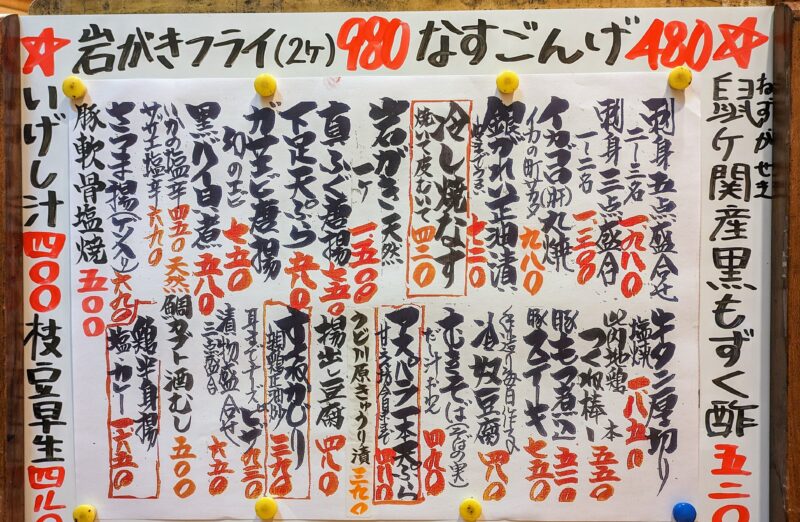 ☆岩がきフライ(2ヶ)980 なすごんげ480☆
鼠ヶ関産黒もずく酢 五二〇
ねずがせき
刺身五点盛合せ 二〜三名 一九八〇
刺身三点盛合 一〜二名 一、二三〇
イカゴロ(肝)丸焼 九八〇
銀がれい正油漬 七三〇
冷し焼なす 焼いて皮むいて 四二〇
岩がき 天然 一ヶ 一五〇〇
真ふぐ唐揚 七五〇
下足天ぷら 六八〇
ガサエビ唐揚 幻のエビ 七五〇
黒バイ貝煮 五八〇
いかの塩辛 四五〇
サザエ塩辛 六九〇
さつま揚 六九〇
豚軟骨塩焼 五〇〇
牛タン厚切り 塩焼 一八五〇
山内地鶏 つくね棒 一本 五五〇
豚もつ煮込 五三〇
豚ステーキ 七五〇
冷奴豆腐 四八〇
むきそば(そばの実) だし汁 四九〇
アスパラ一本天ぷら 四八〇
うど川原きゅうり漬 三九〇
揚出し豆腐 四八〇
三九〇
ピザ 九三〇
漬物盛合せ 三〜五名 六五〇
天然鯛カブト酒むし 五〇〇
鶏半身揚 塩・カレー 一六五〇
いげし汁 四〇〇
枝豆早生 四八〇